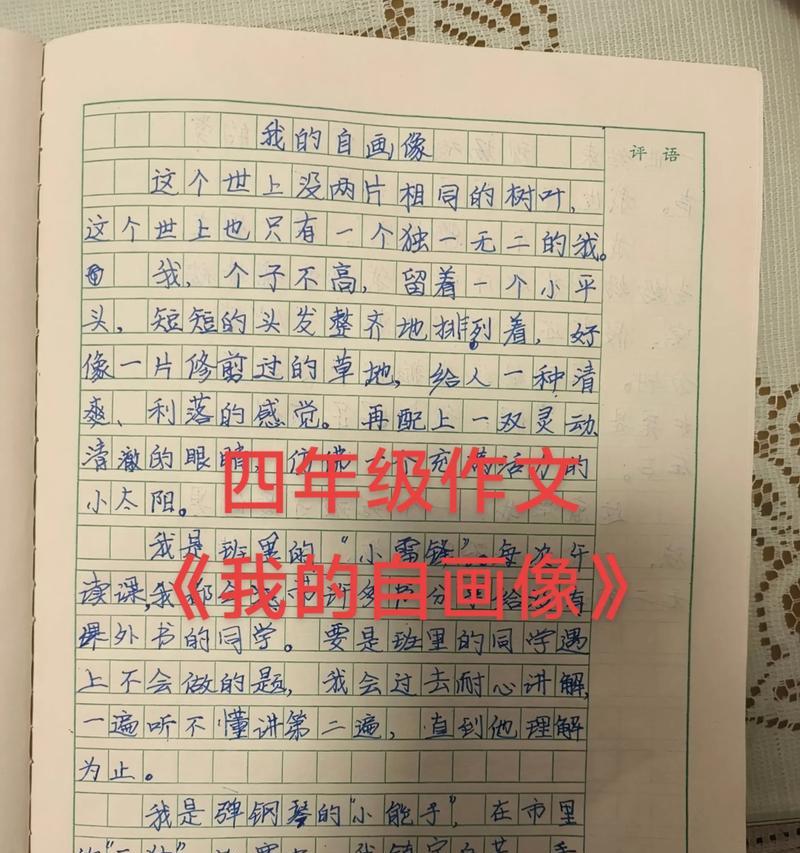 我的自画像
评语
这个世上没两片相同的树叶，
这个世上也只有一个独一无二的我。
我，个子不高，留着一个小平
头，短短的头发整齐地排列着，好
像一片修剪过的草地，给人一种清
爽、利落的感觉。再配上一双灵动
清澈的眼睛，仿佛一个充满活力的
四年级作文
小太阳。
我是班里的"小雷锋"。每次午
读课，我都会
《我的自画像》
课外书的同学。要是班里的同学遇
上不会做的题，我会过去耐心讲解，
一遍听不懂讲第二遍，直到他理解
为止。
我是弹钢琴的"小能手"，在市里